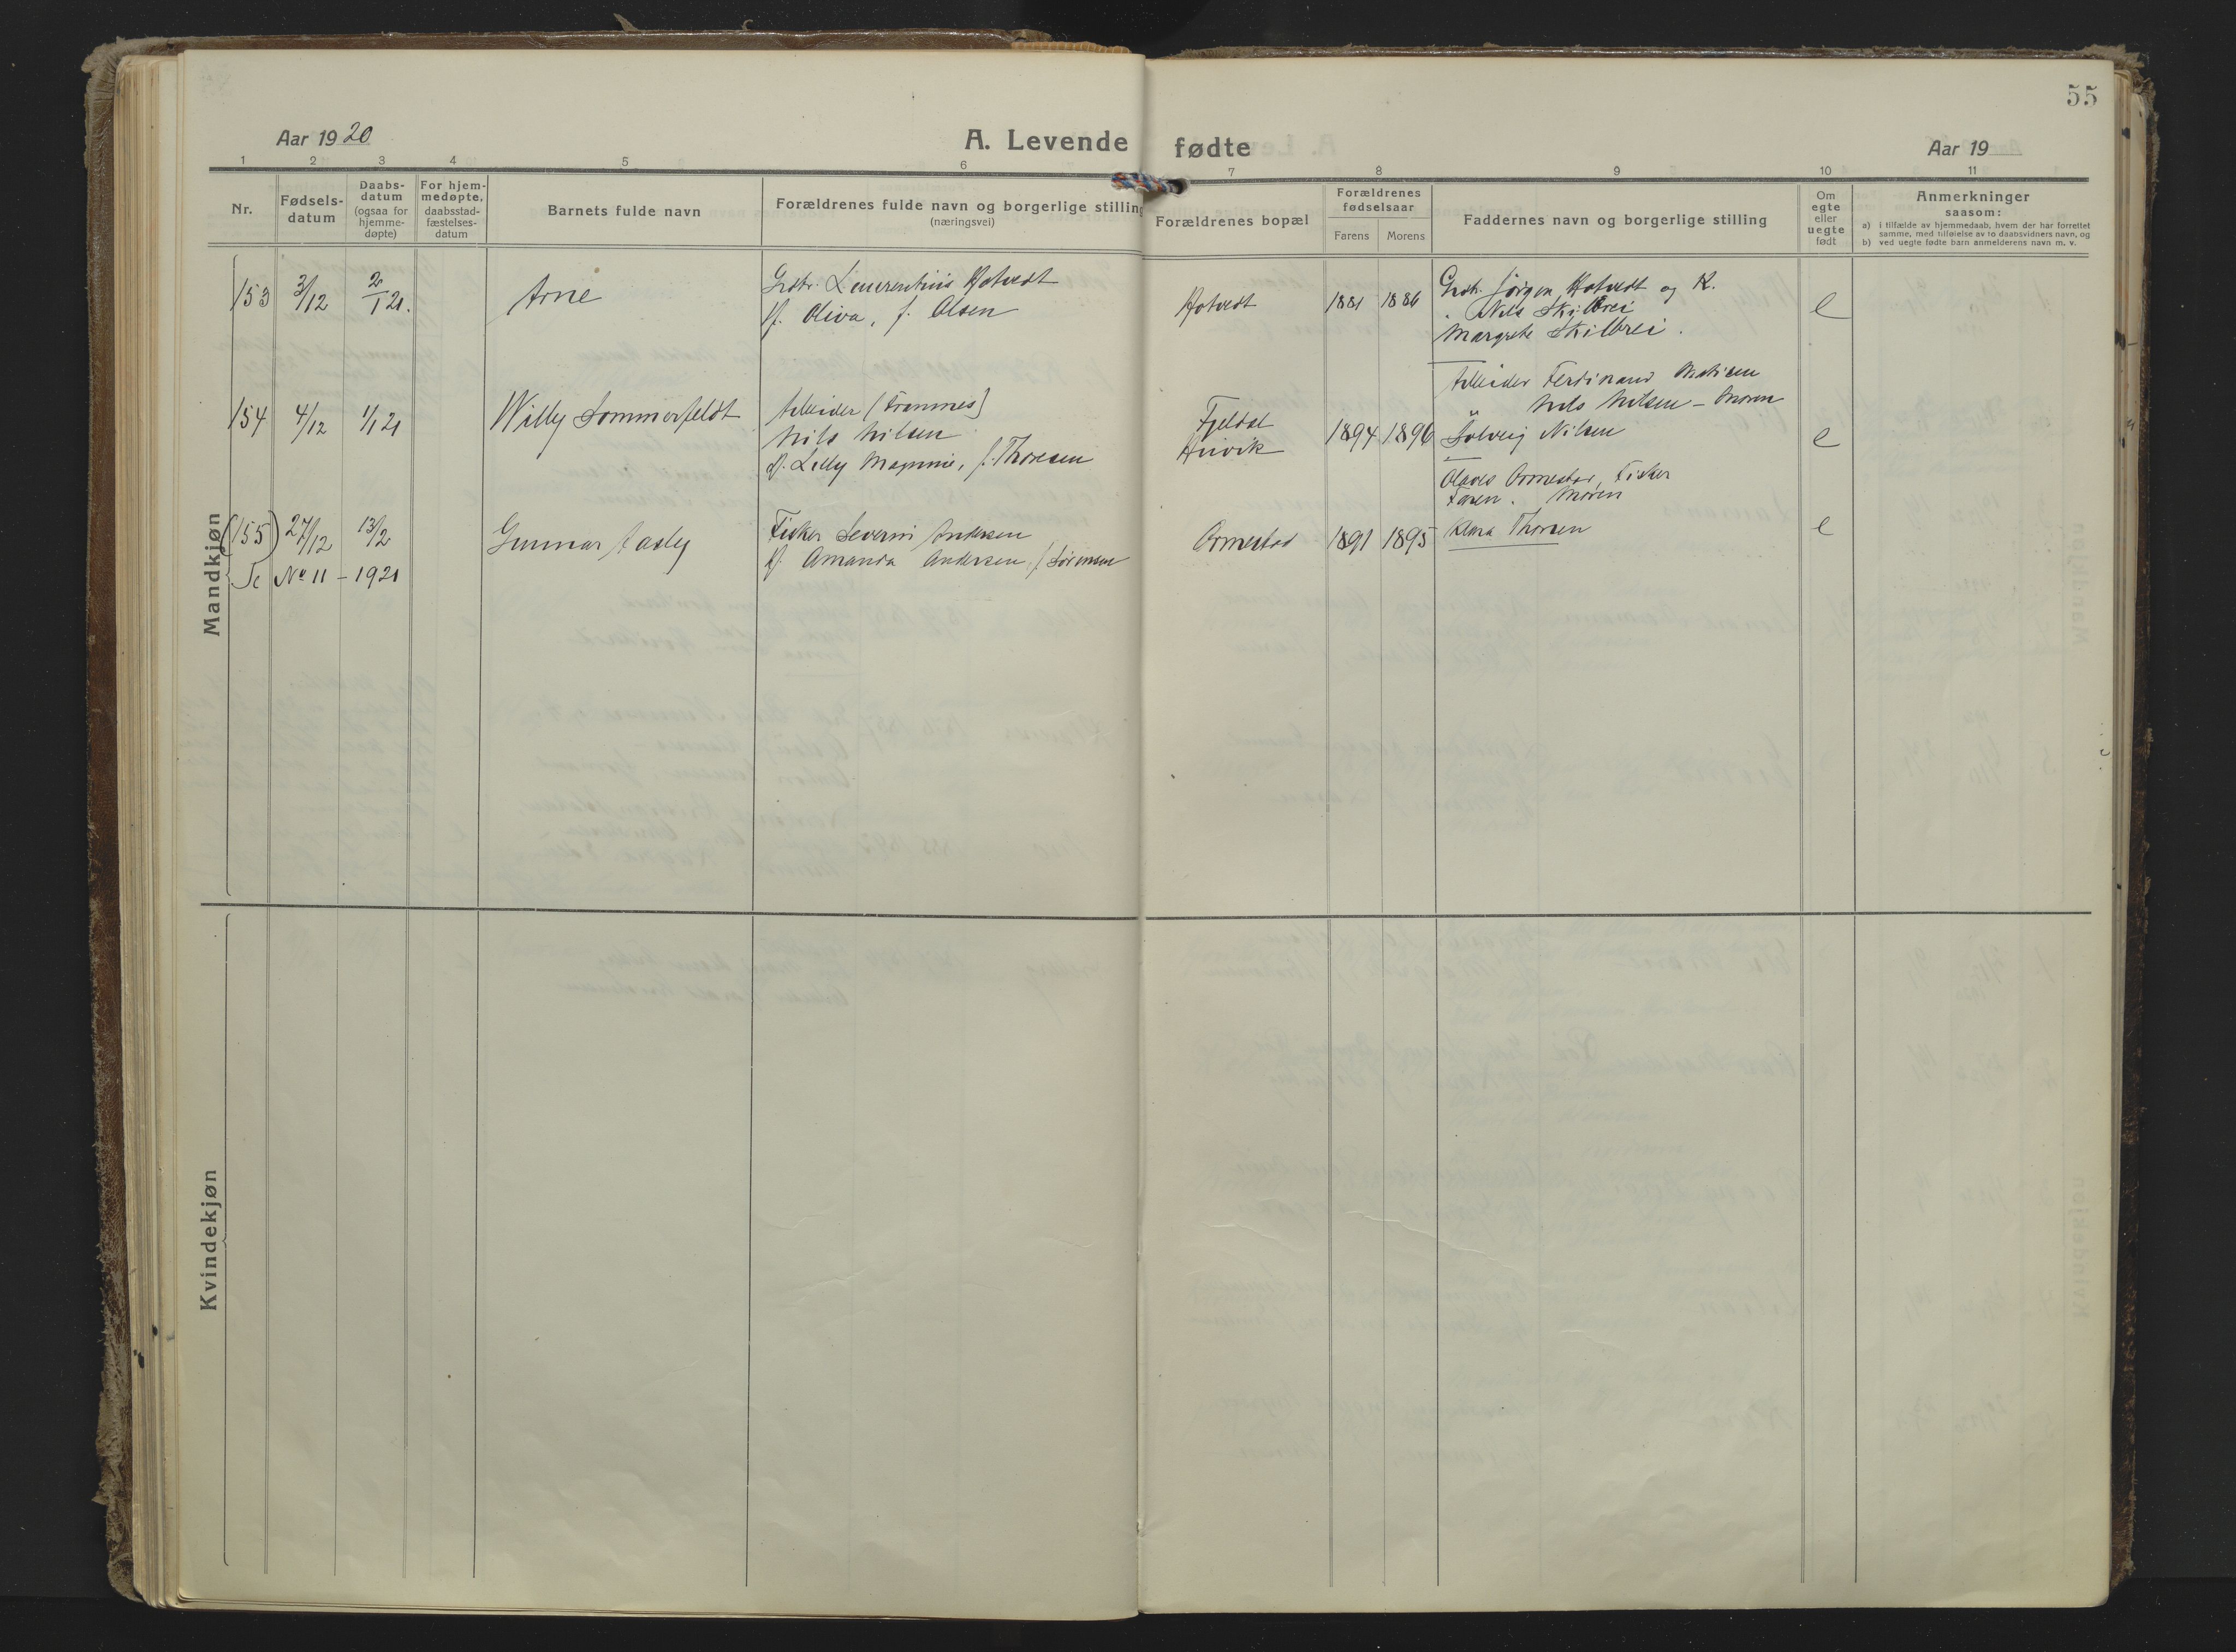 55
Aar 1920
A. Levende fødte
Aar 19
1 2 3 4 5 6 7 8 9 10 11
Nr.
Fødsels-
datum
Daabs-
datum
(ogsaa for
hjemme-
døpte)
For hjem-
medøpte,
daabsstad-
fæstelses-
datum
Barnets fulde navn
Forældrenes fulde navn og borgerlige stilling
(næringsvei)
Forældrenes bopæl
Forældrenes
fødselsaar
Farens Morens
Faddernes navn og borgerlige stilling
Om
egte
eller
uegte
født
Anmerkninger
saasom:
a) i tilfælde av hjemmedaab, hvem der har forrettet
samme, med tilføielse av to daabsvidners navn, og
b) ved uegte fødte barn anmelderens navn m. v.
Mandkjøn
153 3/12 2/1 21. Arne
Grdbr. Laurentius Hotvedt
H. Oliva, f. Olsen
Hotvedt 1881 1886
Grdbr. Jørgen Hotvedt og K.
Nils Skilbrei
Margrete Skilbrei.
e
154 4/12 1/1 21 Willy Sommerfeldt
Arbeider (Framnes)
Nils Nilsen
H. Lilly Magnine, f. Thoresen
Fjeldst
Hivik
1894 1896
Arbeider Ferdinand Matisen
Nils Nilsen - Moren
Solveig Nilsen
e
(155) 27/12 13/2 Gunnar Aasly
Fisker Severin Andersen
H. Amanda Andersen, f. Sørensen
Ormestad 1891 1895
Olaves Ormestad, Fisker
Faren. Moren
Klara Thorsen
e
Se No 11 - 1921
Kvindekjøn